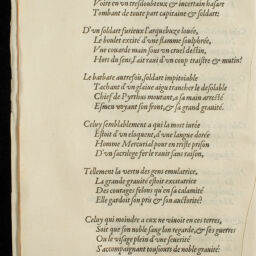 Voire en un tresdoubteux & incertain hasart
Tombant de toute part capitaine & soldart:
D'un soldart furieux l'arquebuze louée,
Le boulet excité d'une flamme soulphrée,
Vne couarde main sous un cruel destin,
Hors du sens, l'ait ravi d'un coup traistre & mutin!
Le barbare autrefois, soldart impitoiable
Tachant d'un glaiue aigu trancher le desolable
Chief de Pyrrhus mourant, a sa main arresté
Esmeu voyant son front, & sa grand grauité.
Celuy semblablement a qui la mort iurée
Estoit d'un eloquent, d'une langue dorée
Homme Mercurial pour en triste prison
D'un sacrilege fer le ravir sans raison,
Tellement la vertu des gens emulatrice,
La grande grauité estoit excitatrice
Des courages felons qu'en sa calamité
Elle gardoit son pris & son auctorité!
Celuy qui moindre a eux ne viuoit en ces terres,
Soit que son noble sang lon regarde, & ses guerres
Ou le visage plein d'une seuerité
S'accompaignant tousiours de noble grauité: